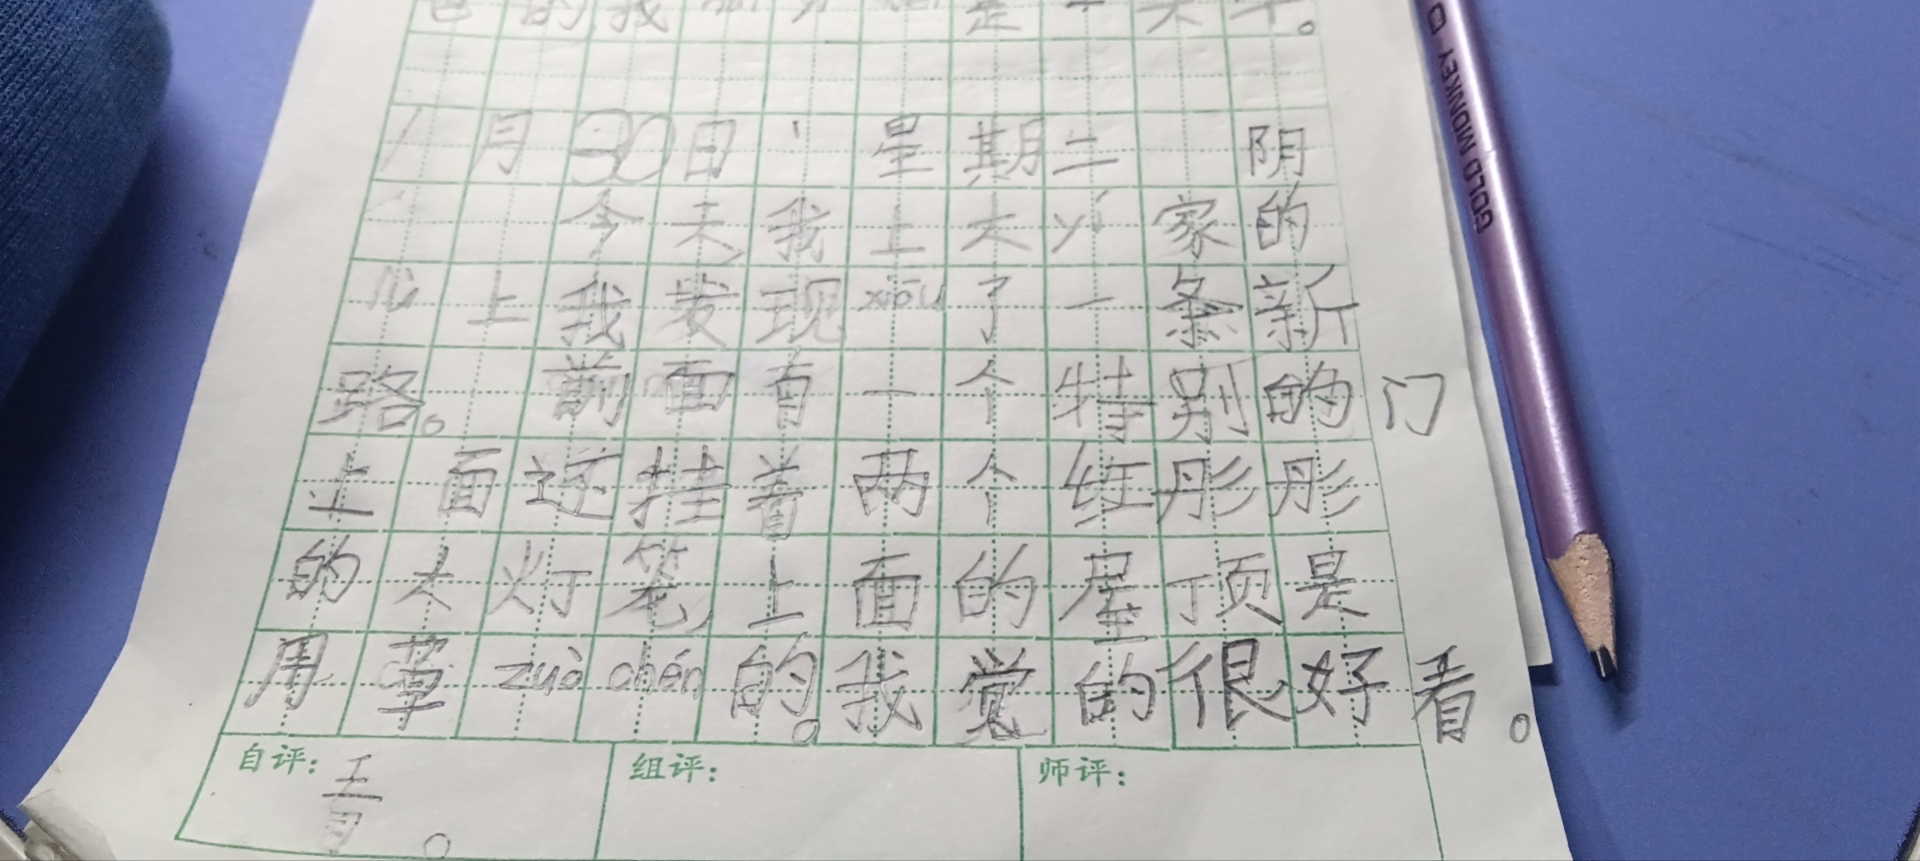 是
1月30日 星期二 阴
今天,我上大yí家的
上我发现xiōu了一条新
路。前面有一个特别的门
上面还挂着两个红彤彤
的大灯笼上面的屋顶是
用草zuò chén的。我觉的很好看。
自评: 组评: 师评:
GOLD MONKEY